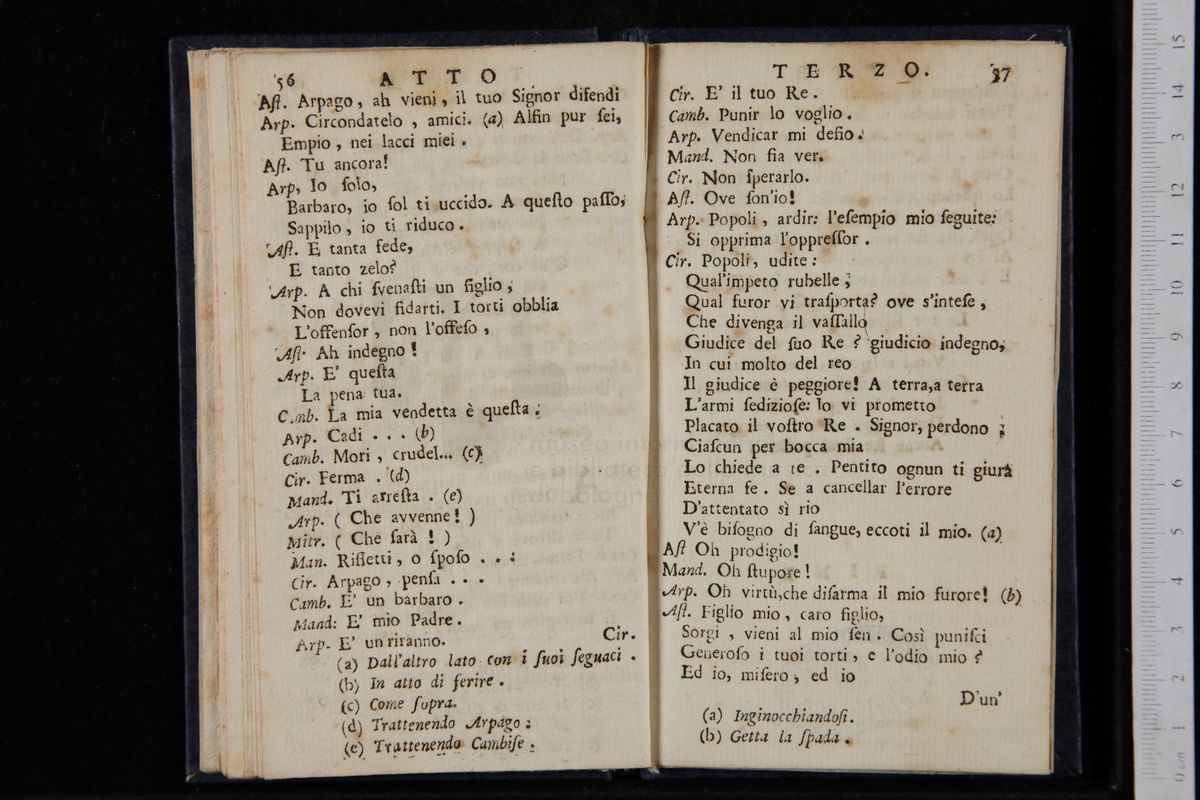 56 ATTO
Aſt. Arpago, ah vieni, il tuo Signor difendi
Arp. Circondatelo, amici. (a) Alfin pur ſei,
Empio, nei lacci miei.
Aſt. Tu ancora!
Arp, Io ſolo,
Barbaro, io ſol ti uccido. A queſto paſſo,
Sappilo, io ti riduco.
Aſt. E tanta fede,
E tanto zelo?
Arp. A chi ſvenaſti un figlio,
Non dovevi fidarti. I torti obblia
L'offenſor, non l'offeſo,
Aſt. Ah indegno!
Arp. E' queſta
La pena tua.
Camb. La mia vendetta è queſta.
Arp. Cadi . . . (b)
Camb. Mori, crudel... (c)
Cir. Ferma. (d)
Mand. Ti arreſta. (e)
Arp. ( Che avvenne! )
Mitr. ( Che ſarà! )
Man. Rifletti, o ſpoſo . . .
Cir. Arpago, penſa . . .
Camb. E' un barbaro.
Mand: E' mio Padre.
Arp. E' un riranno.
Cir.
(a) Dall'altro lato con i ſuoi ſeguaci.
(b) In atto di ferire.
(c) Come ſopra.
(d) Trattenendo Arpago:
(e) Trattenendo Cambiſe.
TERZO. 37
Cir. E' il tuo Re.
Camb. Punir lo voglio.
Arp. Vendicar mi deſio.
Mand. Non fia ver.
Cir. Non ſperarlo.
Aſt. Ove ſon'io!
Arp. Popoli, ardir: l'eſempio mio ſeguite:
Si opprima l'oppreſſor.
Cir. Popoli, udite:
Qual'impeto rubelle;
Qual furor vi traſporta? ove s'inteſe,
Che divenga il vaſſallo
Giudice del ſuo Re? giudicio indegno,
In cui molto del reo
Il giudice è peggiore! A terra,a terra
L'armi ſedizioſe: Io vi prometto
Placato il voſtro Re. Signor, perdono;
Ciaſcun per bocca mia
Lo chiede a te. Pentito ognun ti giura
Eterna fe. Se a cancellar l'errore
D'attentato sì rio
V'è biſogno di ſangue, eccoti il mio. (a)
Aſt Oh prodigio!
Mand. Oh ſtupore!
Arp. Oh virtù,che diſarma il mio furore! (b)
Aſt. Figlio mio, caro figlio,
Sorgi, vieni al mio ſen. Così puniſci
Generoſo i tuoi torti, e l'odio mio?
Ed io, miſero, ed io
D'un'
(a) Inginocchiandoſi.
(b) Getta la ſpada.
0 cm 1 2 3 4 5 6 7 8 9 10 11 12 13 14 15